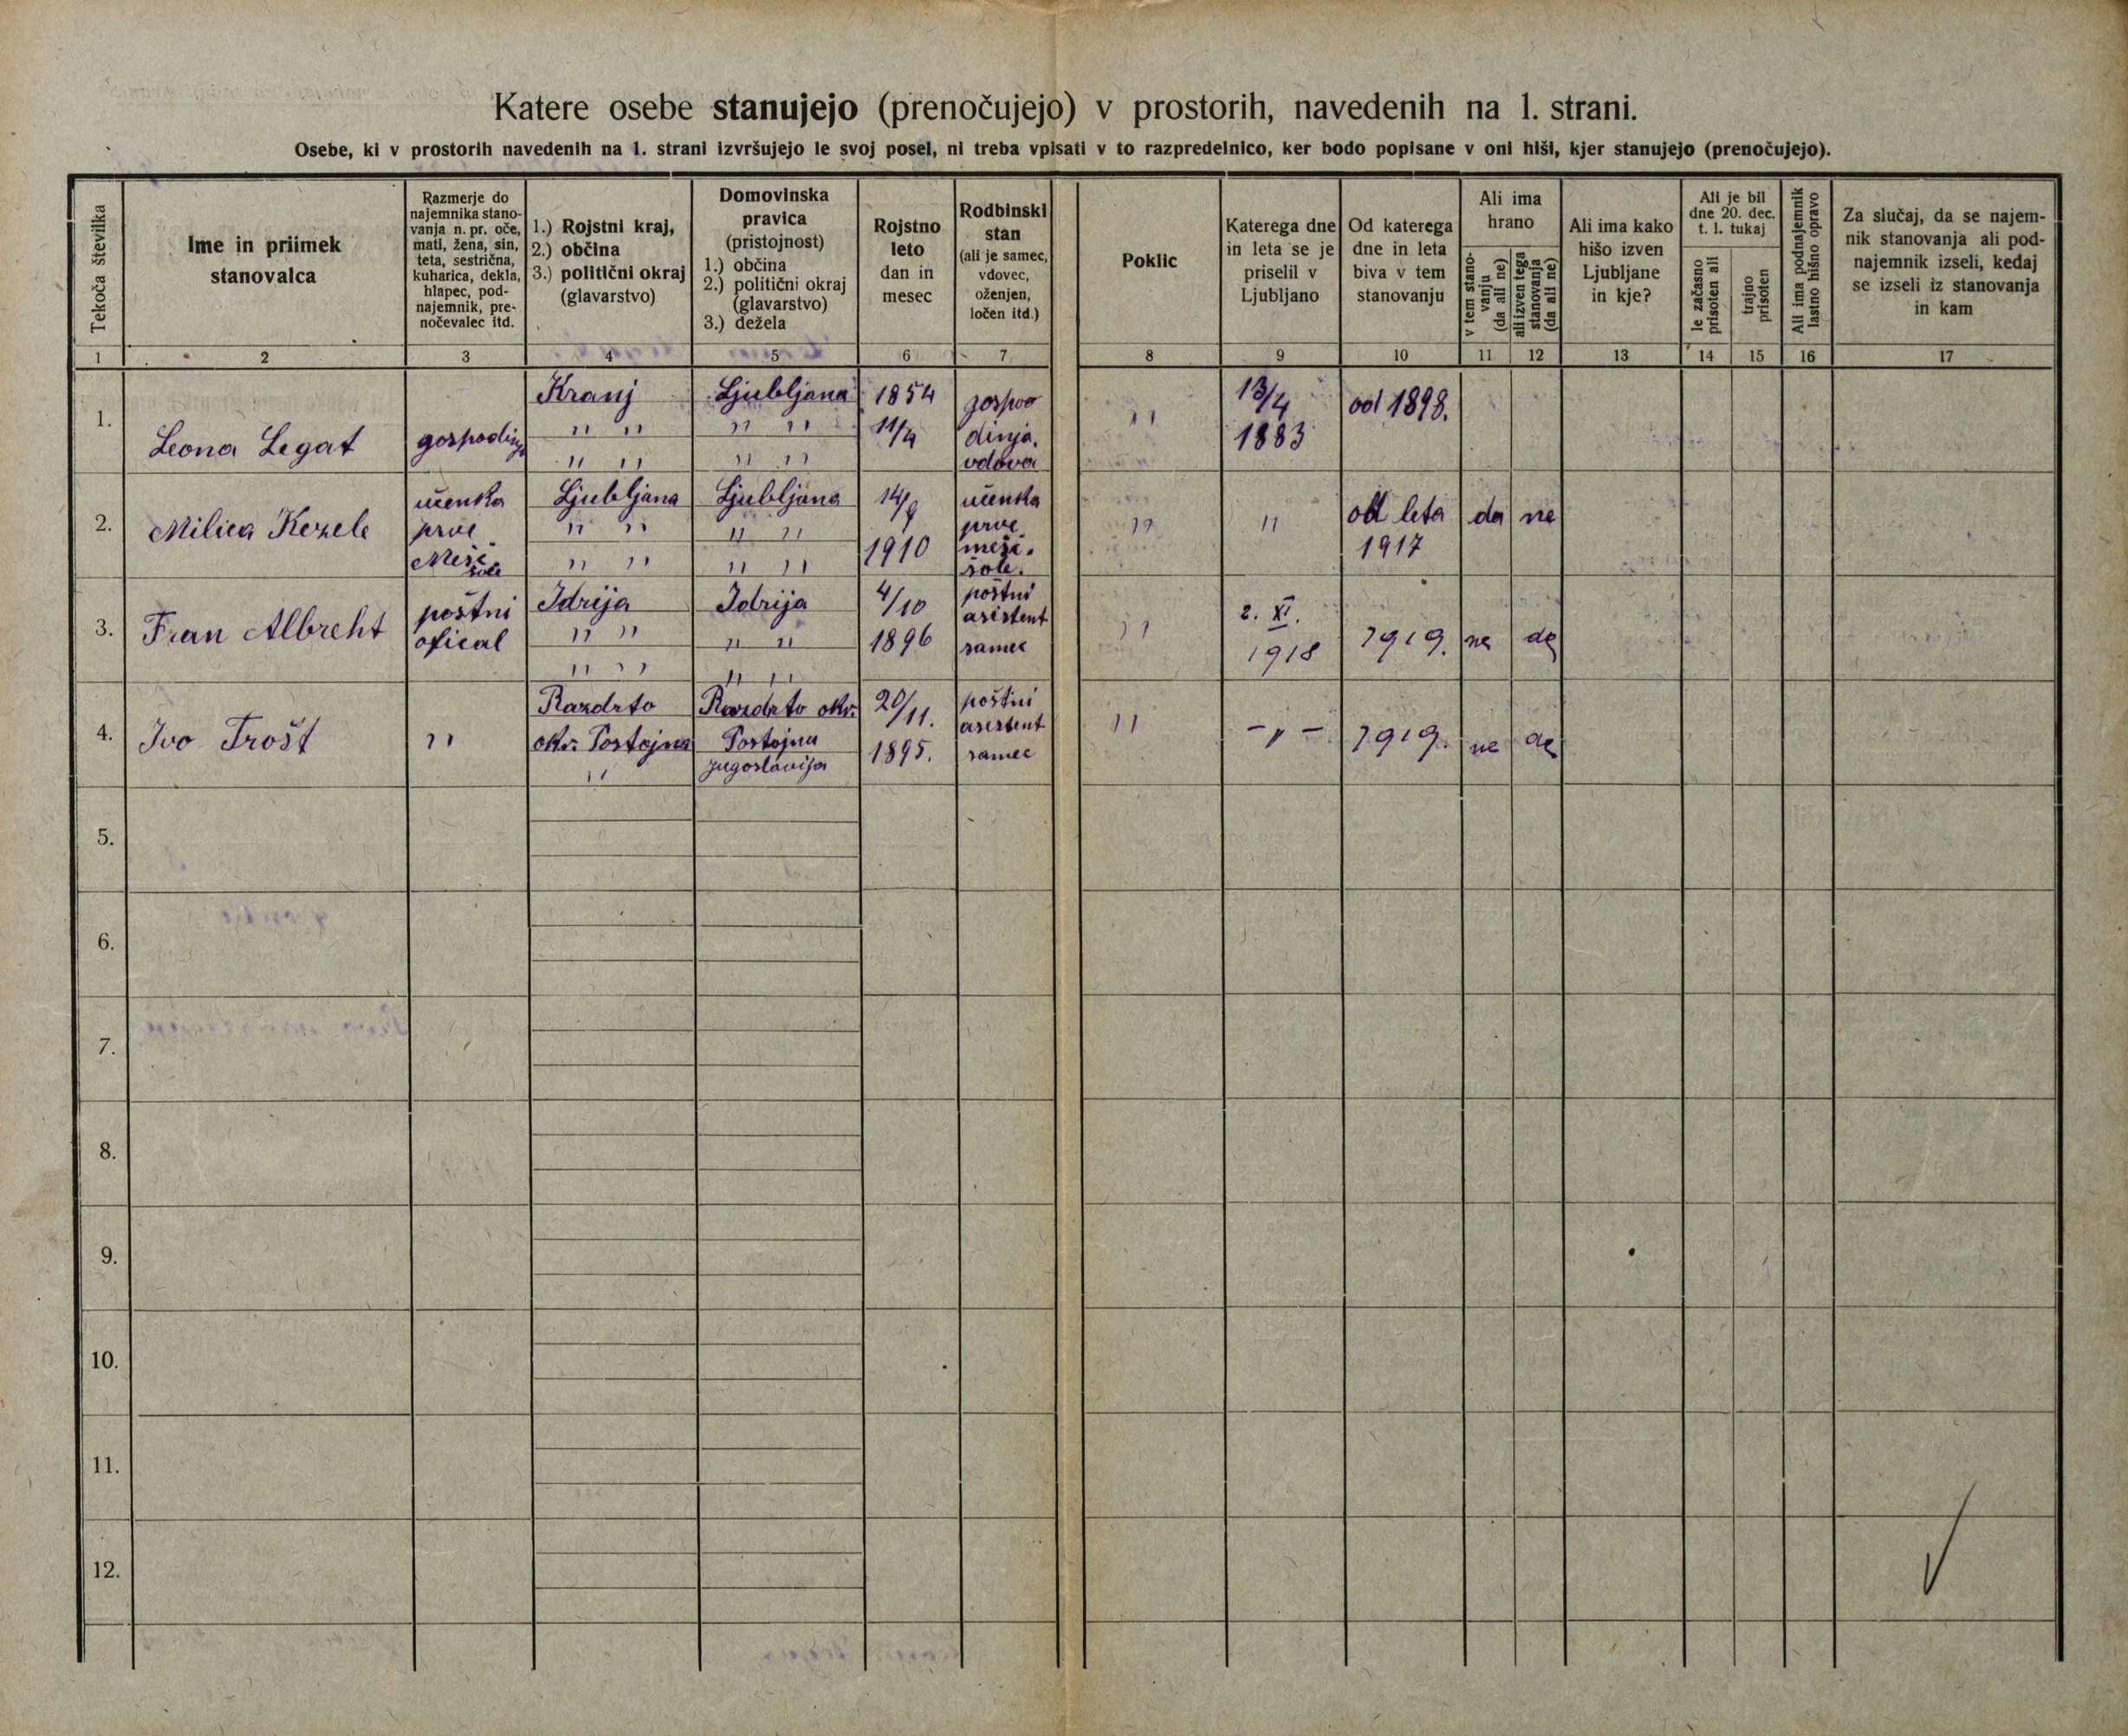 Katere osebe stanujejo (prenočujejo) v prostorih, navedenih na 1. strani.
Osebe, ki v prostorih navedenih na 1. strani izvršujejo le svoj posel, ni treba vpisati v to razpredelnico, ker bodo popisane v oni hiši, kjer stanujejo (prenočujejo).
Tekoča številka
Ime in priimek
stanovalca
Razmerje do
najemnika stano-
vanja n. pr. oče,
mati, žena, sin,
teta, sestrična,
kuharica, dekla,
hlapec, pod-
najemnik, pre-
nočevalec itd.
1.) Rojstni kraj,
2.) občina
3.) politični okraj
(glavarstvo)
Domovinska
pravica
(pristojnost)
1.) občina
2.) politični okraj
(glavarstvo)
3.) dežela
Rojstno
leto
dan in
mesec
Rodbinski
stan
(ali je samec,
vdovec,
oženjen,
ločen itd.)
Poklic
Katerega dne
in leta se je
priselil v
Ljubljano
Od katerega
dne in leta
biva v tem
stanovanju
Ali ima
hrano
v tem stano-
vanju
(da ali ne)
ali izven tega
stanovanja
(da ali ne)
Ali ima kako
hišo izven
Ljubljane
in kje?
Ali je bil
dne 20. dec.
t. l. tukaj
le začasno
prisoten ali
trajno
prisoten
Ali ima podnajemnik
lastno hišno opravo
Za slučaj, da se najem-
nik stanovanja ali pod-
najemnik izseli, kedaj
se izseli iz stanovanja
in kam
1 2 3 4 5 6 7 8 9 10 11 12 13 14 15 16 17
1.
Leona Legat
gospodinja
Kranj
" "
" "
Ljubljana
" "
" "
1854
11/4
gospo
dinja.
vdova
"
13/4
1883
od 1898.
2.
Milica Kezele
učenka
prve
Mešč.
šole
Ljubljana
" "
" "
Ljubljana
" "
" "
14/9
1910
učenka
prve
mešč.
šole.
"
"
od leta
1917
da ne
3.
Fran Albreht
poštni
oficial
Idrija
" "
" "
Idrija
" "
" "
4/10
1896
poštni
asistent
samec
"
2. XI.
1918
1919.
ne da
4.
Ivo Trošt
"
Razdrto
okr. Postojna
"
Razdrto okr.
Postojna
Jugoslavija
20/11.
1895.
poštni
asistent
samec
"
- " -
1919.
ne da
5.
6.
7.
8.
9.
10.
11.
12.